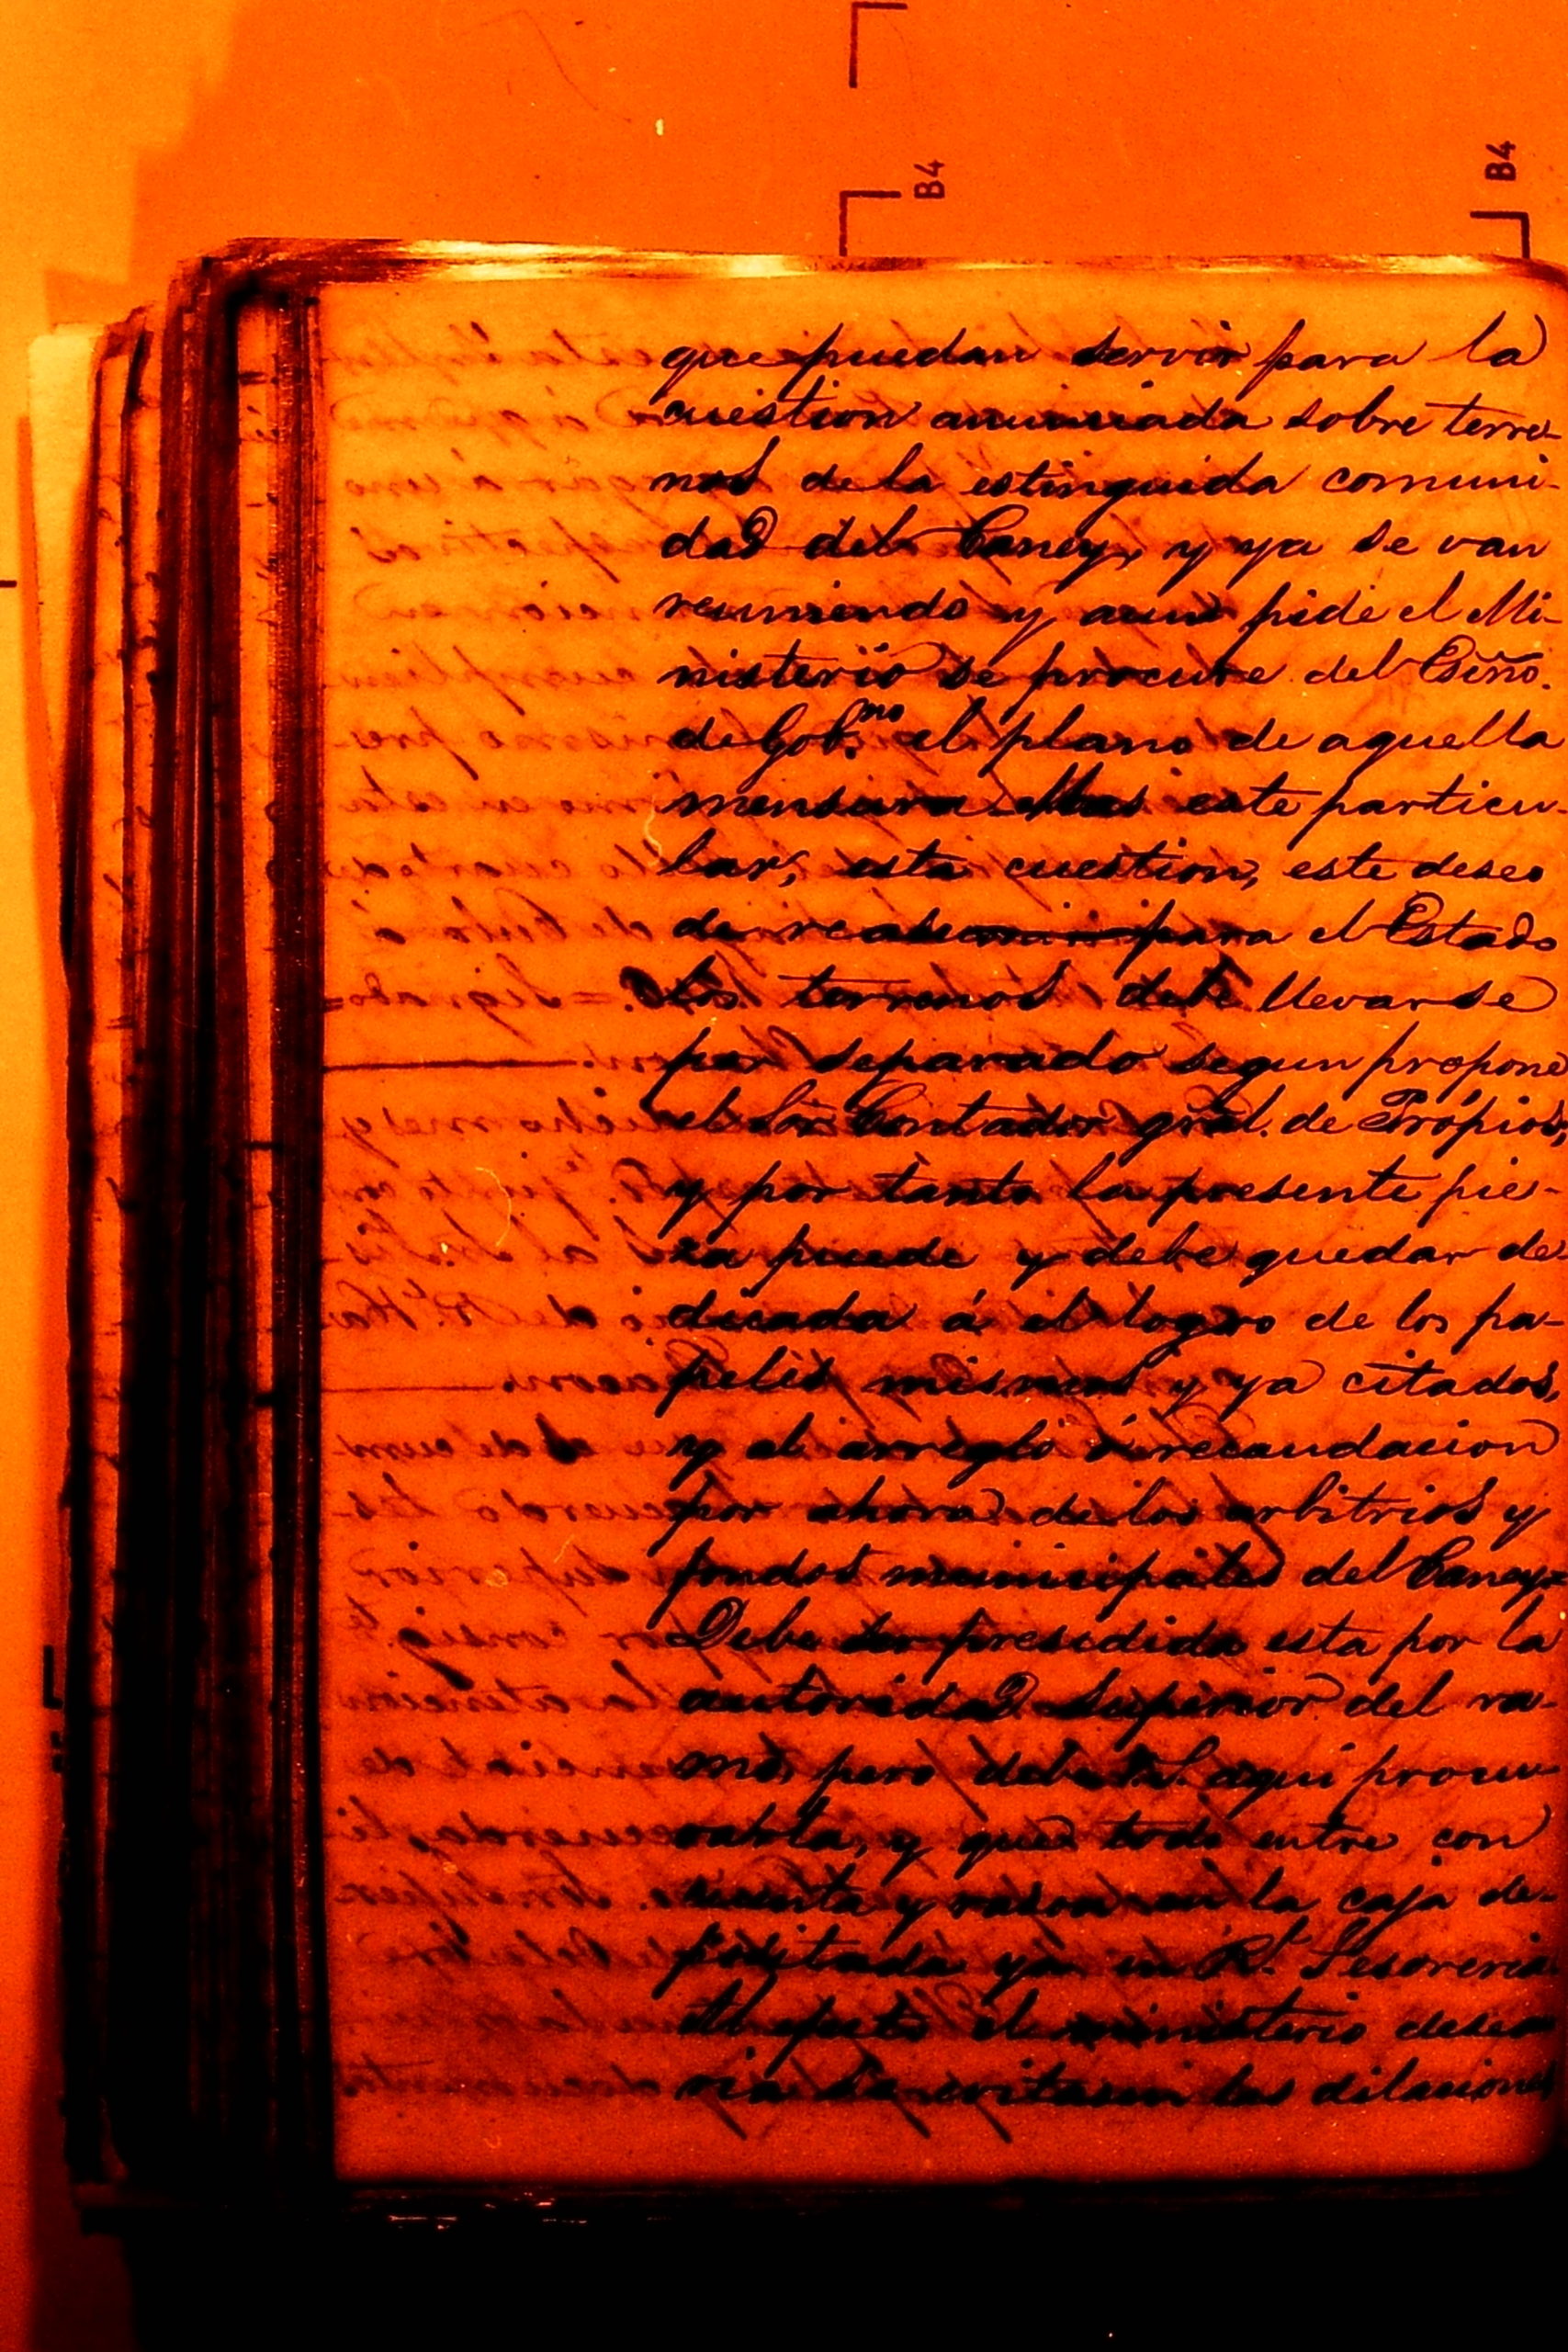 B4
B4
que puedan servir para la
cuestion anunciada sobre terre-
nos de la estinguida comuni-
dad del Caney, y ya se van
reuniendo y aun pide el Mi-
nisterio se procure del Esmo.
de Gob.no el plano de aquella
mensura Mas este particu-
lar, esta cuestion, este deseo
de reasumir para el Estado
los terrenos debe llevarse
por separado segun propone
el Sor. Contador gral. de Própios,
y por tanto la presente pie-
za puede y debe quedar de-
dicada á el logro de los pa-
peles mismos y ya citados,
y al arreglo i recaudacion
por ahora de los arbitrios y
fondos municipales del Caney=
Debe ser presidida esta por la
autoridad Superior del ra-
mo, pero debe aqui procu-
rarla, y que todo entre con
cuenta y razon en la caja de-
positada ya en R.l Tesoreria
Al efecto el ministerio desea-
ria se evitasen las dilaciones